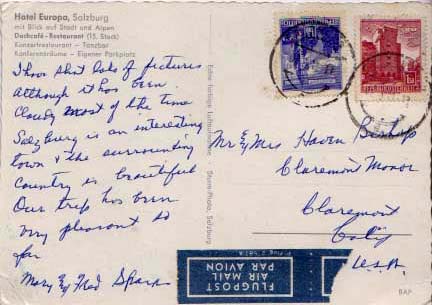 Hotel Europa, Salzburg
mit Blick auf Stadt und Alpen
Dachcafé-Restaurant (15. Stock)
Konzertrestaurant - Tanzbar
Konferenzräume - Eigener Parkplatz
I have shot lots of pictures
although it has been
cloudy most of the time
Salzburg is an interesting
town & the surrounding
country is beautiful
Our trip has been
very pleasant so
far
Mary & Fred
Mr & Mrs Haven Bishop
Claremont Manor
Claremont
Calif
U.S.A.
FLUGPOST
AIR MAIL
PAR AVION
BAP